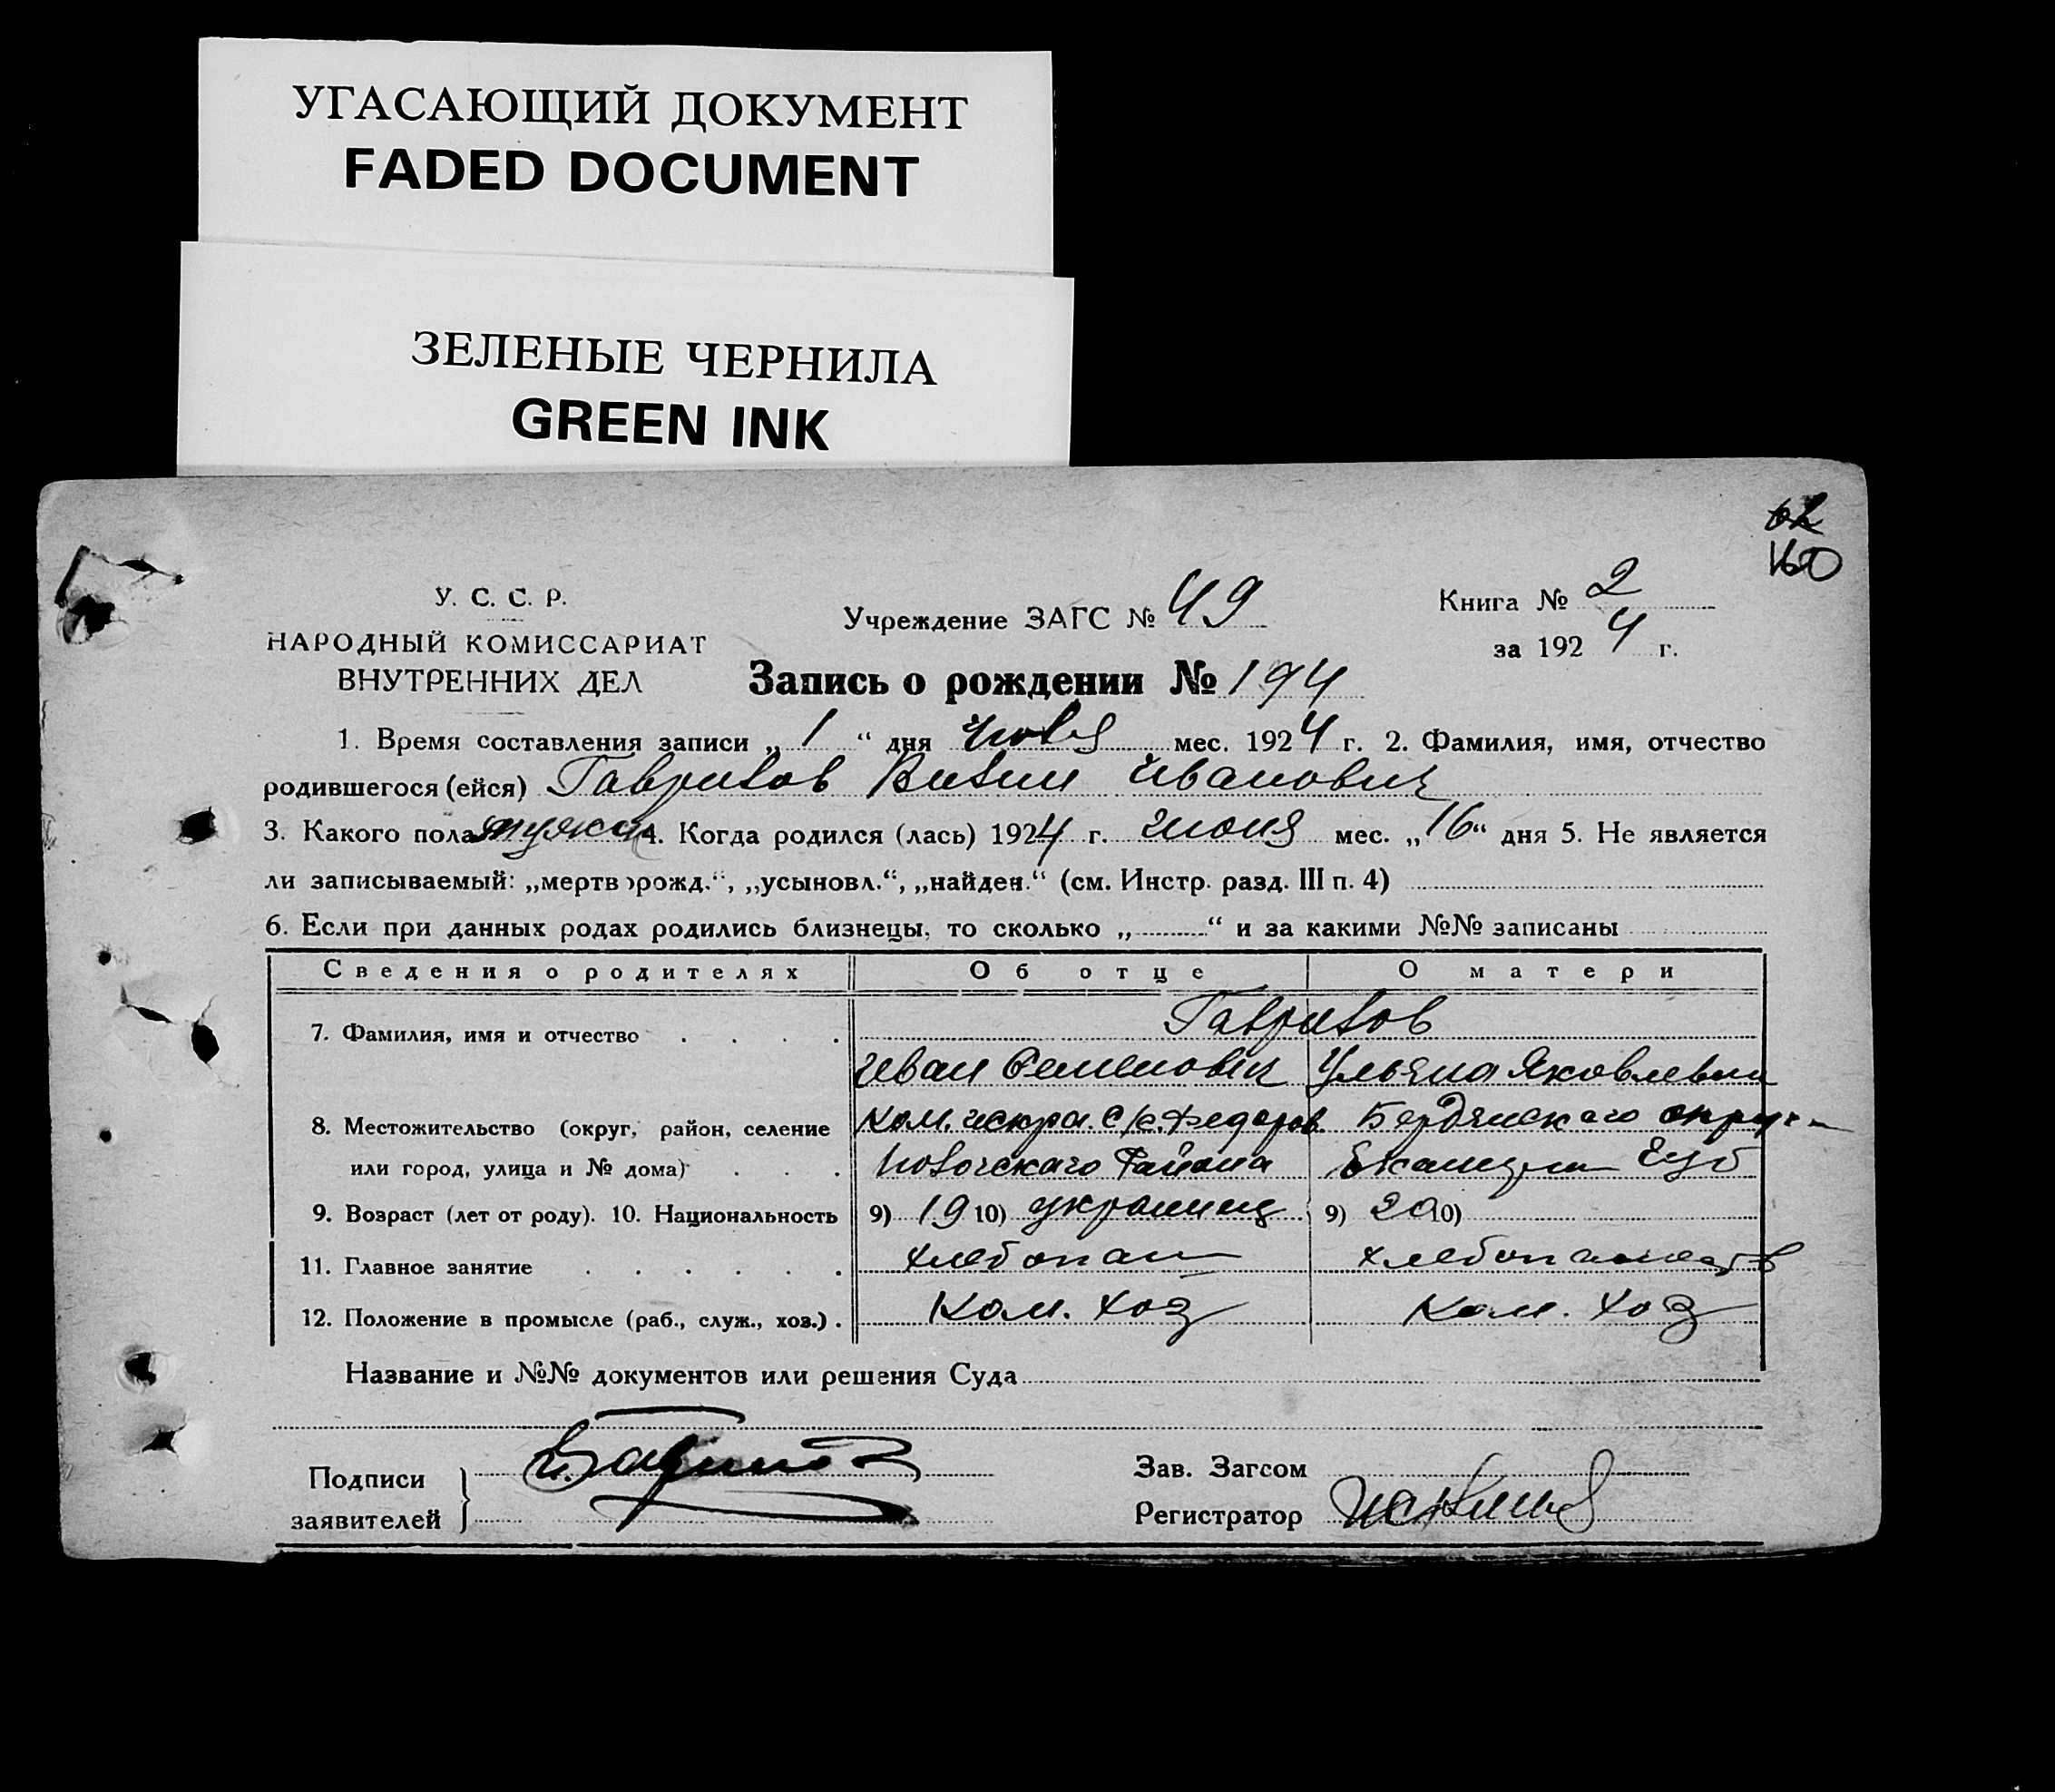 УГАСАЮЩИЙ ДОКУМЕНТ
FADED DOCUMENT
ЗЕЛЕНЫЕ ЧЕРНИЛА
GREEN INK
160
У. С. С. Р.
НАРОДНЫЙ КОМИССАРИАТ
ВНУТРЕННИХ ДЕЛ
Учреждение ЗАГС № 49
Книга № 2
за 1924 г.
Запись о рождении № 194
1. Время составления записи „ 1 “ дня июля мес. 1924 г. 2. Фамилия, имя, отчество
родившегося (ейся) Гаврилов Вилин Иванович
3. Какого пола мужск 4. Когда родился (лась) 1924 г. июня мес. „16“ дня 5. Не является
ли записываемый: „мертворожд.“, „усыновл.“, „найден.“ (см. Инстр. разд. III п. 4)
6. Если при данных родах родились близнецы, то сколько „ “ и за какими №№ записаны
Сведения о родителях Об отце О матери
7. Фамилия, имя и отчество Гаврилов
Иван Семенович Ульяна Яковлевна
8. Местожительство (округ, район, селение Ком. искра. с/с. Федоров. Бердянскаго округа
или город, улица и № дома) района
9. Возраст (лет от роду). 10. Национальность 9) 19 10) украинец 9) 20 10)
11. Главное занятие хлебопаш хлебопашеств
12. Положение в промысле (раб., служ., хоз.) Ком. хоз Ком. хоз
Название и №№ документов или решения Суда
Подписи
заявителей
Зав. Загсом
Регистратор